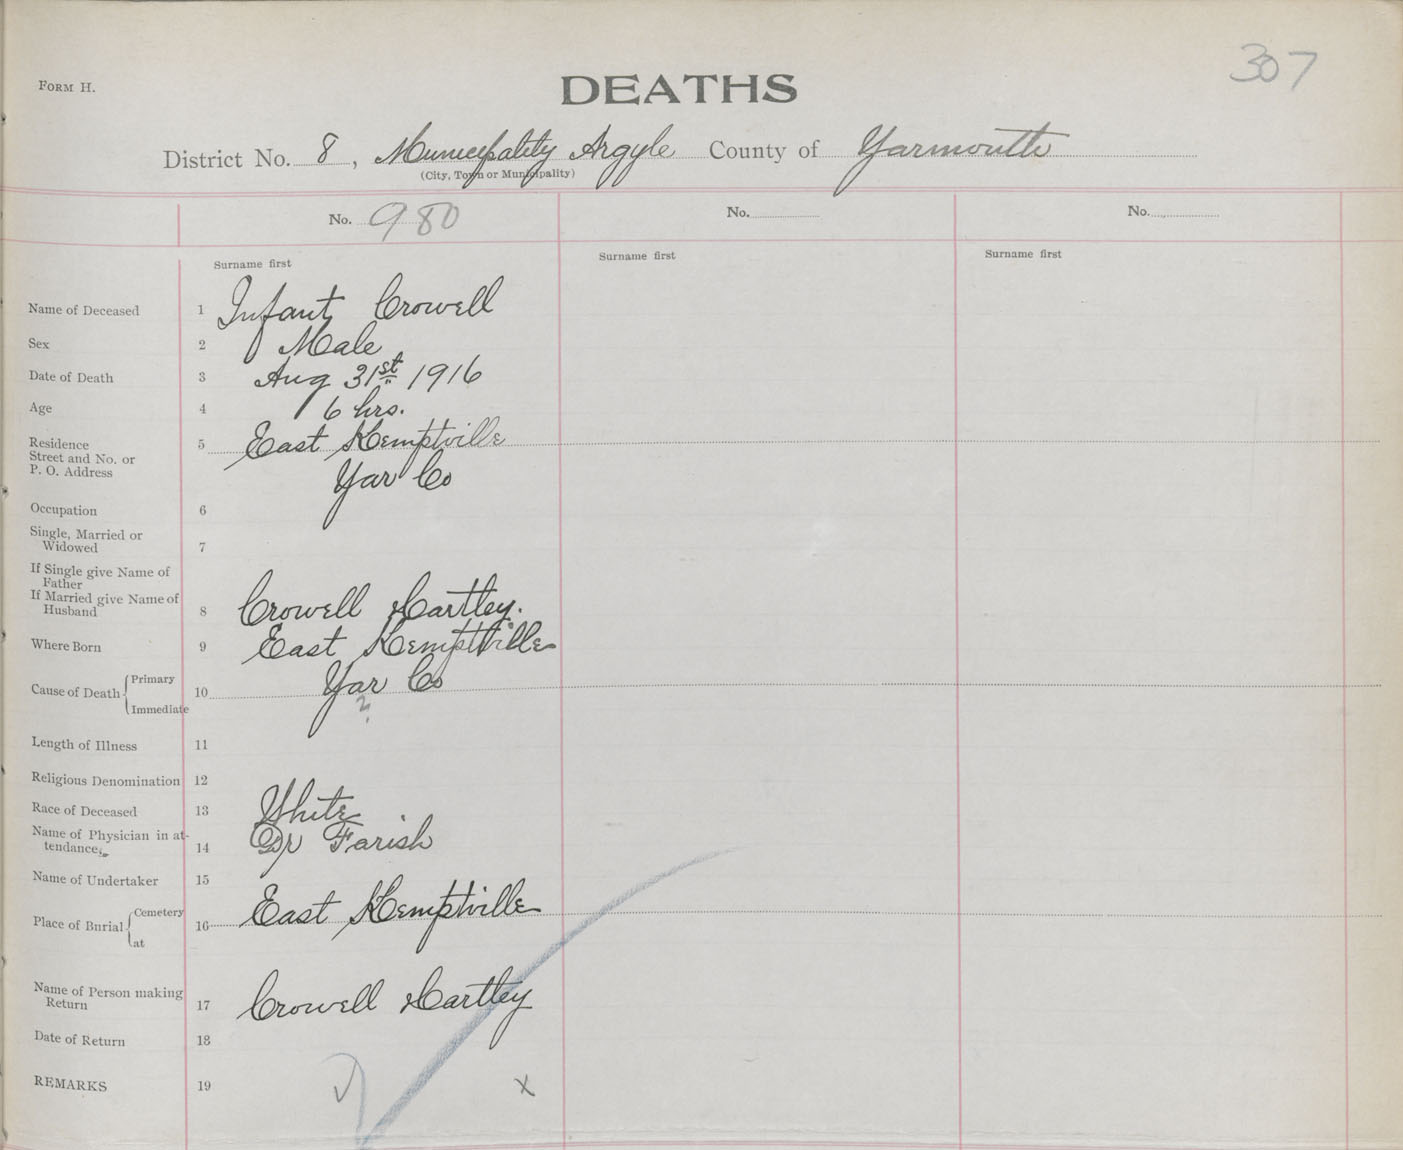 307
FORM H.
DEATHS
District No. 8, Municipality Argyle County of Yarmouth
(City, Town or Municipality)
No. 980 No. No.
Surname first Surname first Surname first
Name of Deceased 1 Infant Crowell
Sex 2 Male
Date of Death 3 Aug 31st 1916
Age 4 6 hrs.
Residence 5 East Kemptville
Street and No. or
P. O. Address Yar Co
Occupation 6
Single, Married or
Widowed 7
If Single give Name of
Father
If Married give Name of
Husband 8 Crowell Hartley.
Where Born 9 East Kemptville
Yar Co
Cause of Death { Primary 10
Immediate ?
Length of Illness 11
Religious Denomination 12
Race of Deceased 13 White
Name of Physician in at-
tendance 14 Dr Farish
Name of Undertaker 15
Place of Burial { Cemetery 16 East Kemptville
at
Name of Person making
Return 17 Crowell Hartley
Date of Return 18
REMARKS 19 x